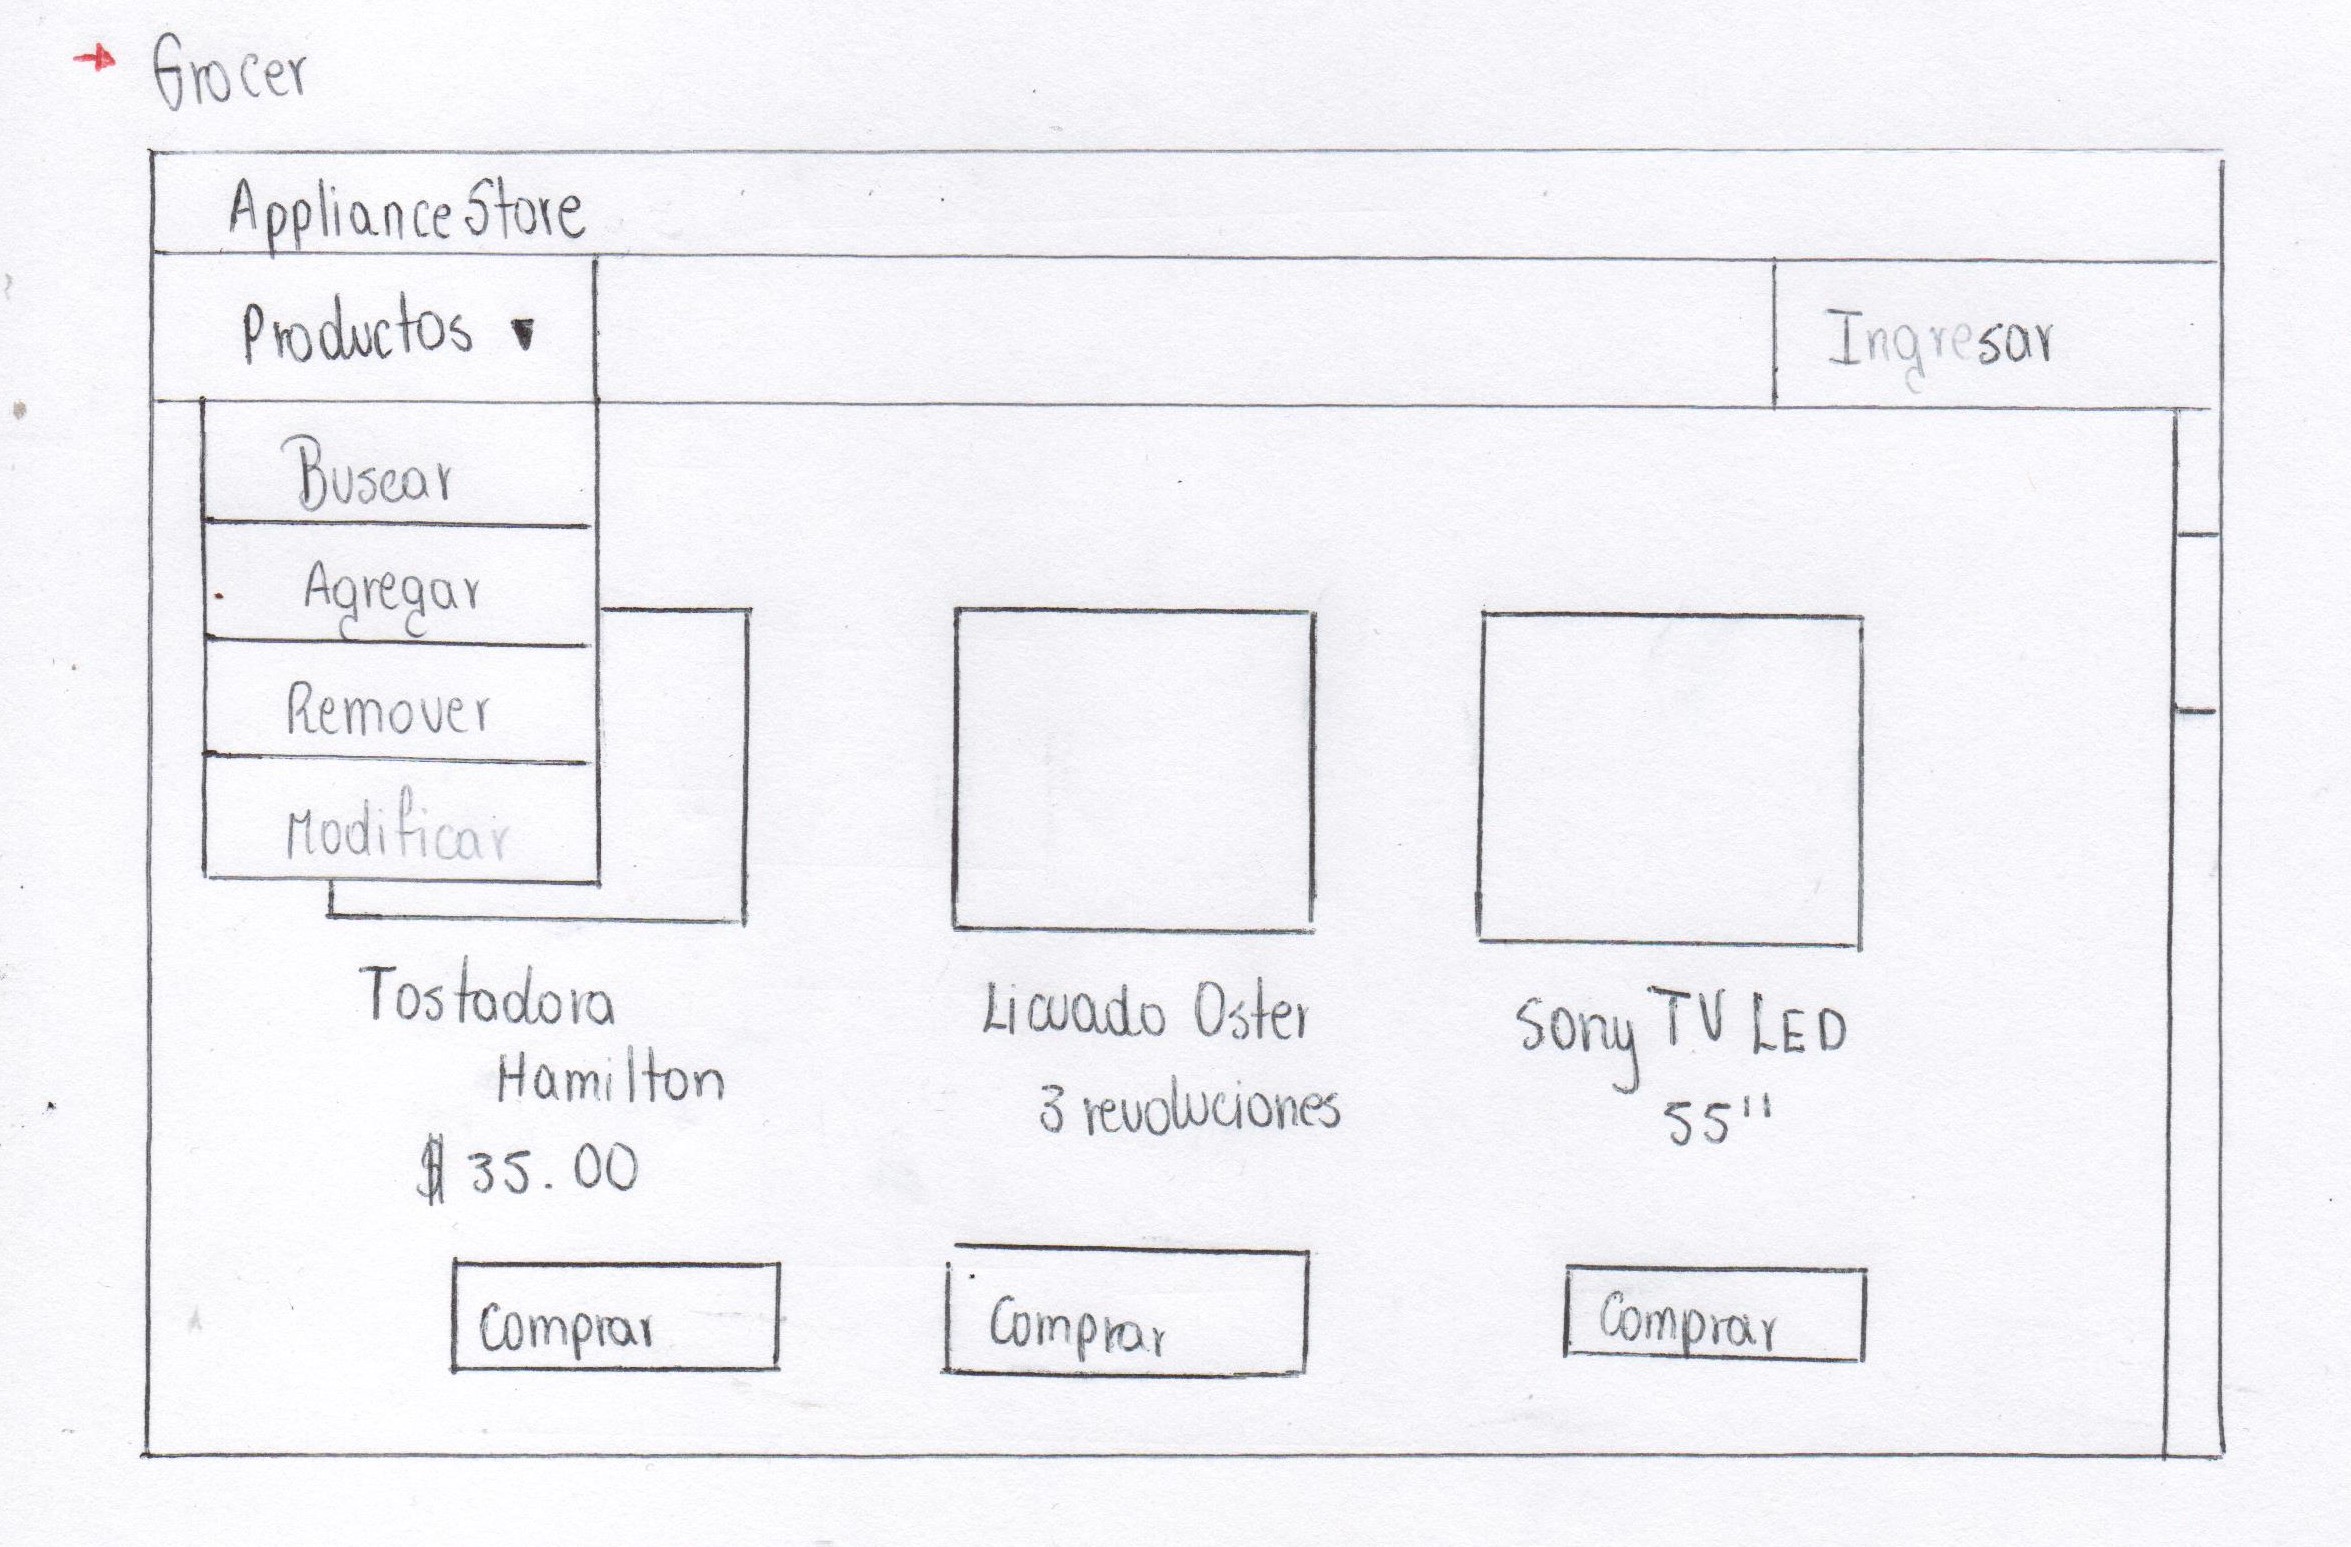 Grocer
Appliance Store
Productos
Ingresar
Buscar
Agregar
Remover
Modificar
Tostadora
Hamilton
$ 35.00
Licuado Oster
3 revoluciones
Sony TV LED
55"
Comprar
Comprar
Comprar